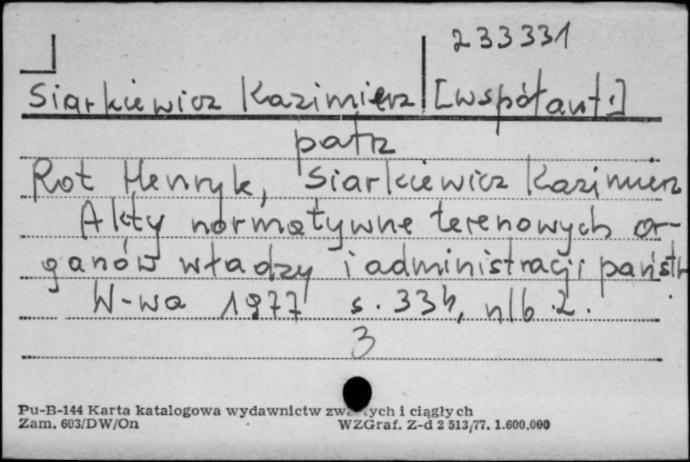 233331
Siarkiewicz Kazimierz [współaut.]
patrz
Rot Henryk, Siarkiewicz Kazimierz
Akty normatywne terenowych or-
ganów władzy i administracji państw
W-wa 1977 s. 334, nlb 2.
3
Pu-B-144 Karta katalogowa wydawnictw zwartych i ciągłych
Zam. 603/DW/On WZGraf. Z-d 2 513/77. 1.600.000